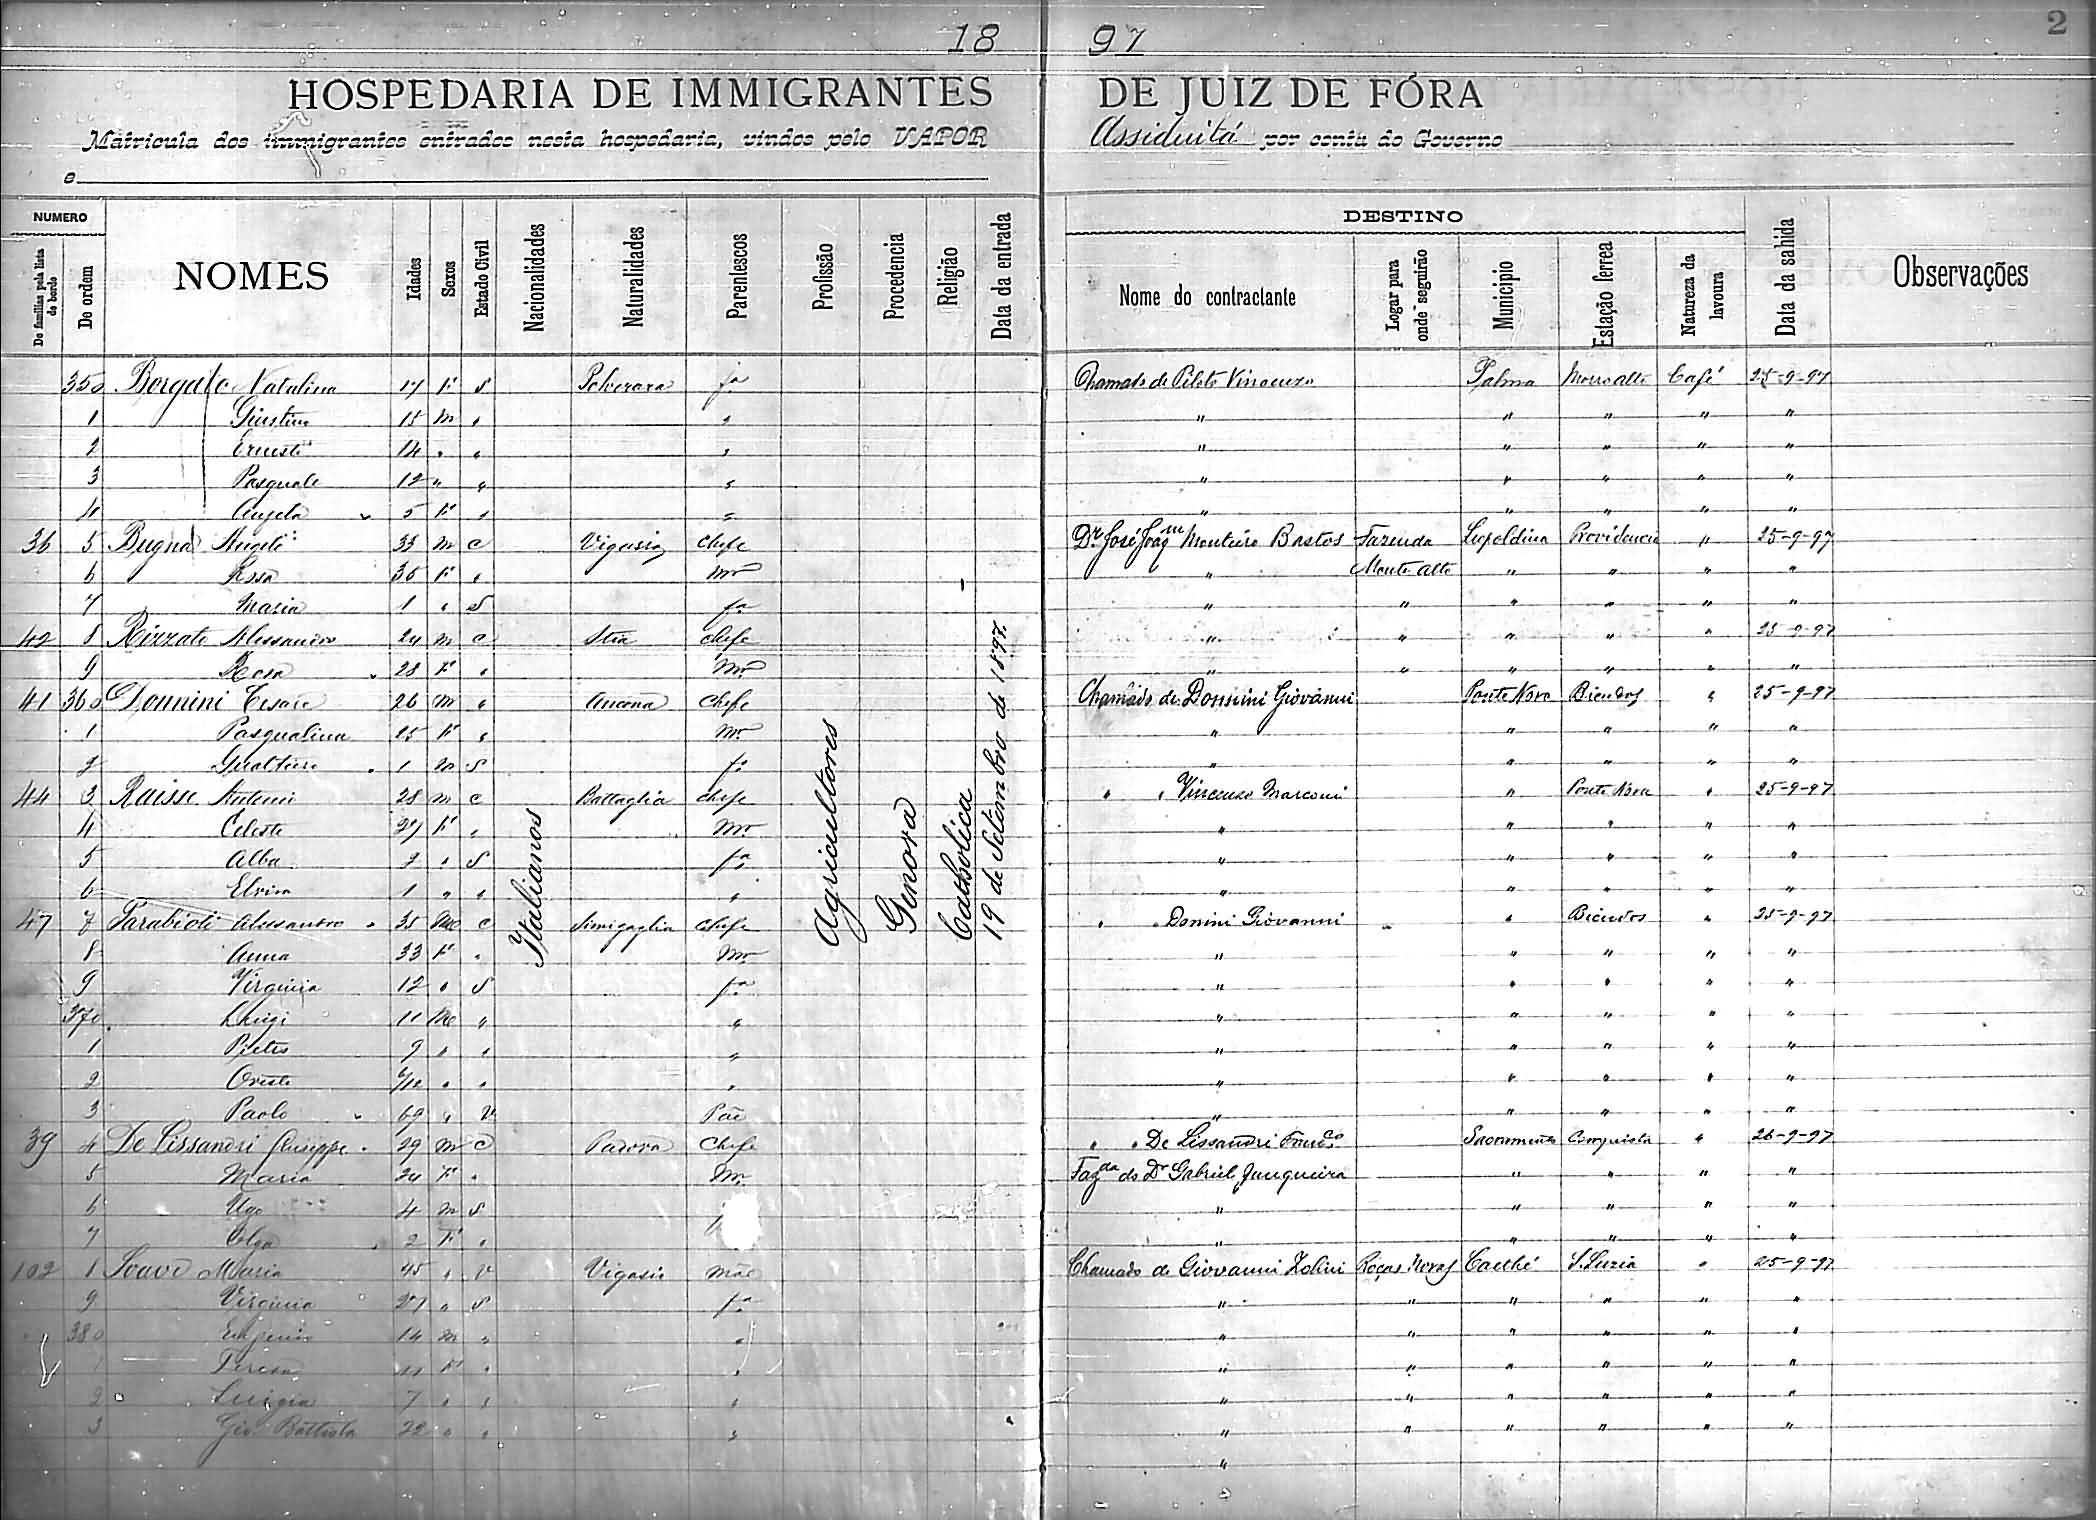 2
18 97
HOSPEDARIA DE IMMIGRANTES DE JUIZ DE FÓRA
Matricula dos immigrantes entrados nesta hospedaria, vindos pelo VAPOR Assiduitá por conta do Governo
e
NUMERO DESTINO
De familias pela lista de bordo Do ordem NOMES Idades Sexos Estado Civil Nacionalidades Naturalidades Parentescos Profissão Procedencia Religião Data da entrada Nome do contractante Logar para onde seguirão Municipio Estação ferrea Natureza da lavoura Data da sahida Observações
Italianos Agricultores Genova Catholica 19 de Setembro de 1897.
350 Borgato Natalina 17 F S Polverara fa Chamado de Piloto Vincenzo Palma Morro alto Café 25-9-97
1 Giustino 15 M " " " " " " "
2 Ernesto 14 " " " " " " " "
3 Pasquale 12 " " " " " " " "
4 Angela 5 F " " " " " " "
36 5 Bugna Angelo 33 M C Vigasio Chefe Dr José Joaqm Monteiro Bastos Fazenda Leopoldina Providencia " 25-9-97
6 Rosa 36 F " Mr " Monte Alto " " " "
7 Maria 1 " S fa " " " " " "
42 8 Rizzato Alessandro 24 M C Stra Chefe " " " " " 25-9-97
9 Rosa 28 F " Mr " " " " " "
41 360 Donnini Cesare 26 M " Ancona Chefe Chamado de Donnini Giovanni Ponte Nova Bicudos " 25-9-97
1 Pasqualina 25 F " Mr " " " " "
2 Gualtiero 1 M S fo " " " " "
44 3 Raisse Antonio 28 M C Battaglia Chefe " " Vincenzo Marconi " Ponte Nova " 25-9-97
4 Celeste 27 F " Mr " " " " "
5 Alba 2 " S fa " " " " "
6 Elvira 1 " " " " " " " "
47 7 Tarabioti Alessandro 35 M C Sinigaglia Chefe " " Donini Giovanni " Bicudos " 25-9-97
8 Anna 33 F " Mr " " " " "
9 Virginia 12 " S fa " " " " "
370 Luigi 11 M " " " " " " "
1 Pietro 9 " " " " " " " "
2 Oreste " " " " " " " "
3 Paolo 69 " V Pae " " " " "
39 4 De Lissandri Giuseppe 29 M C Padova Chefe " " De Lissandri Franco Sacramento Conquista " 26-9-97
5 Maria 24 F " Mr Fazda do Dr Gabriel Junqueira " " " "
6 Ugo 4 M S " " " " "
7 Olga 2 F " " " " " "
102 Soave Maria 45 " V Vigasio Mãe Chamado de Giovanni Zolini Roças Novas Caethé S. Luzia " 25-9-97
9 Virginia 27 " S fa " " " " " "
380 Eugenio 14 M " " " " " " " "
1 Teresa 11 F " " " " " " " "
2 Luigia 7 " " " " " " " " "
3 Gio Battista 22 " " " " " " " " "
"